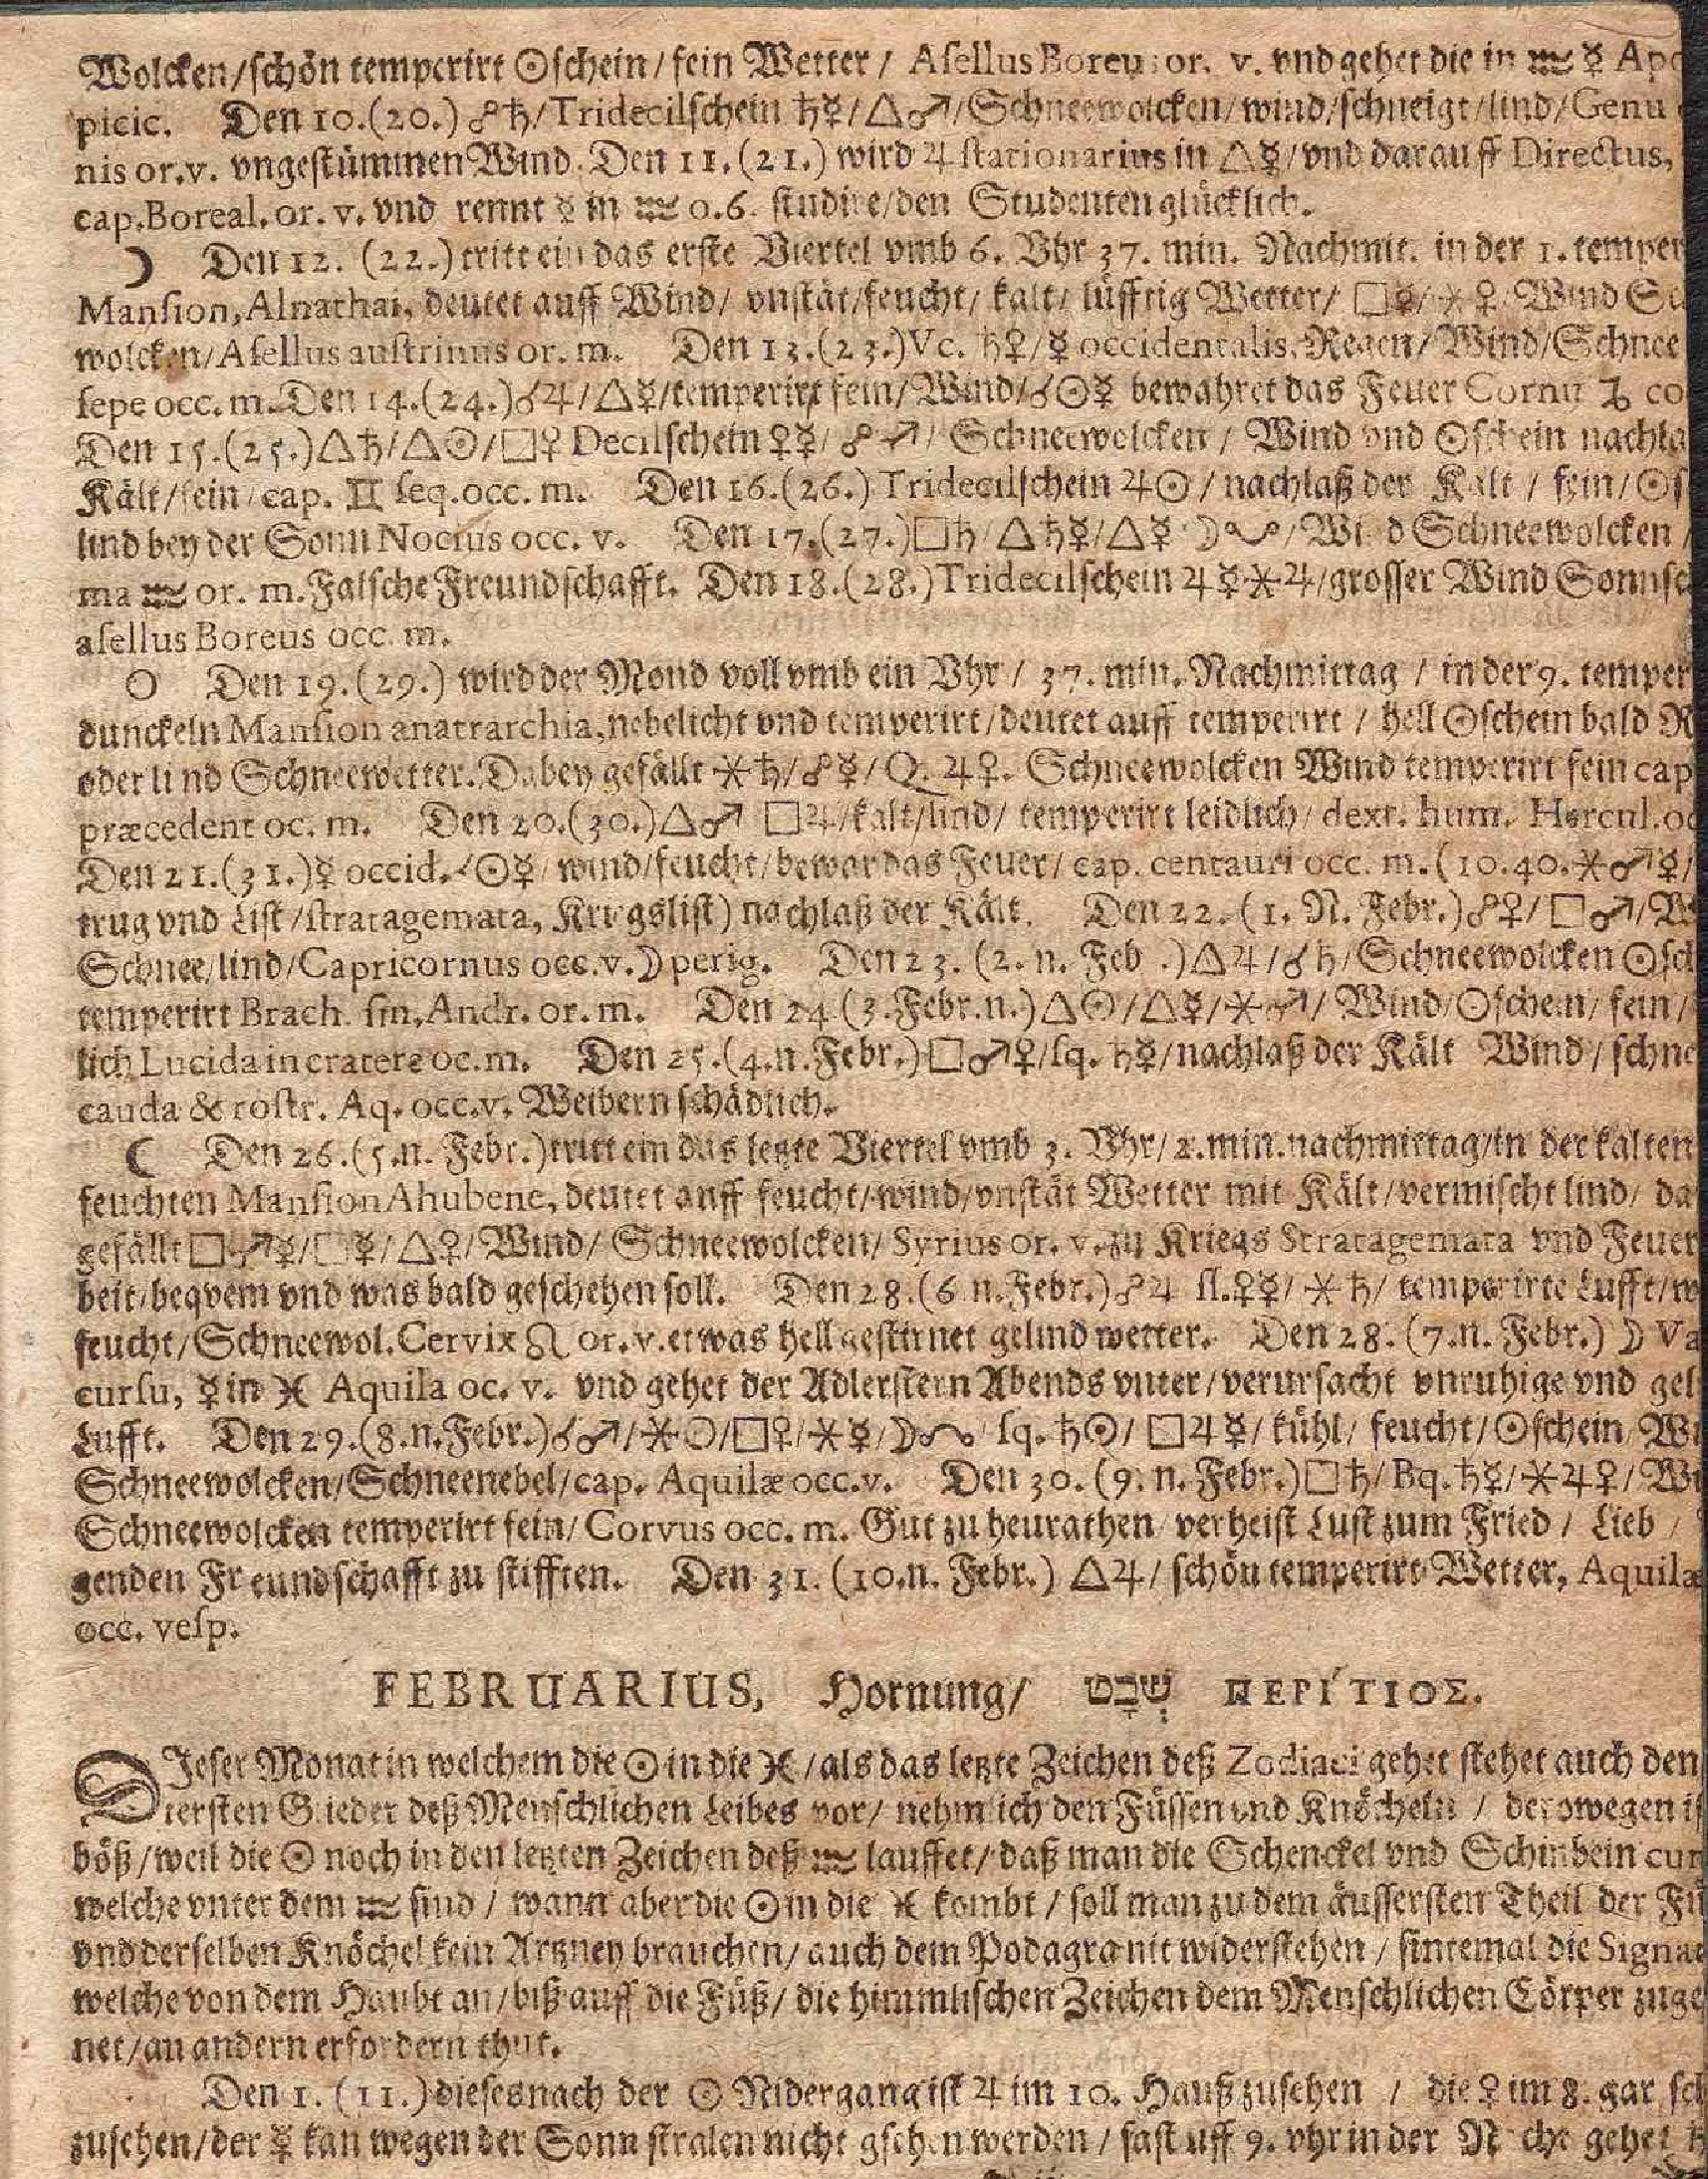 Wolcken/schön temperirt ☉schein/fein Wetter / Asellus Boreu: or. v. vnd gehet die in ♒ ☿ Apo
picic. Den 10.(20.) ☍♄/Tridecilschein ♄☿/△♂/Schneewolcken/wind/schneigt/lind/Genu
nis or.v. vngestümmen Wind. Den 11.(21.) wird ♃ stationarius in △☿/vnd darauff Directus,
cap.Boreal.or.v.vnd rennt ☿ in ♒ 0.6. studire/den Studenten glücklich.
☽ Den 12. (22.) tritt ein das erste Viertel vmb 6. Vhr 37. min. Nachmit. in der 1. temper
Mansion, Alnathai, deutet auff Wind/ vnstät/feucht/ kalt/ lüfftig Wetter/ □☿/⚹♀/Wind Sc
wolcken/Asellus austrinus or. m. Den 13.(23.)Vc. ♄♀/☿ occidentalis.Regen/Wind/Schnee
sepe occ. m. Den 14.(24.)☌♃/△☿/temperirt fein/Wind/☌☉☿ bewahret das Feuer Cornu ♑ co
Den 15.(25.)△♄/△☉/□♀ Decilschein ♀☿/☍♂/ Schneewolcken / Wind vnd ☉schein nachla
Kält/fein/cap. ♊ seq.occ. m. Den 16.(26.) Tridecilschein ♃☉/nachlaß der Kält / fein/☉s
lind bey der Sonn Nocius occ. v. Den 17.(27.)□♄/△♄☿/△☿ ☽☋/Wi d Schneewolcken /
ma ♒ or. m.Falsche Freundschafft. Den 18.(28.)Tridecilschein ♃☿⚹♃/grosser Wind Sonnsc
asellus Boreus occ. m.
○ Den 19.(29.) wird der Mond voll vmb ein Vhr / 37. min. Nachmittag / in der 9. temper
dunckeln Mansion anatrarchia, nebelicht vnd temperirt/deutet auff temperirt / hell ☉schein bald R
oder lind Schneewetter. Dabey gefällt ⚹♄/☍☿/Q. ♃♀. Schneewolcken Wind temperirt fein cap
præcedent oc. m. Den 20.(30.)△♂ □♃/kalt/lind/ temperirt leidlich/ dext. hum. Hercul.oc
Den 21.(31.)☿ occid. ☌☉☿/wind/feucht/bewar das Feuer/ cap. centauri occ. m.(10.40.⚹♂☿/
trug vnd List/stratagemata, Kriegslist) nachlaß der Kält. Den 22. (1. N. Febr.)☍♀/□♂/W
Schnee/lind/Capricornus occ.v.☽ perig. Den 23. (2. n. Feb .)△♃/☌♄/Schneewolcken ☉sch
temperirt Brach. sin, Andr. or. m. Den 24 (3.Febr.n.)△☉/△☿/⚹♂/ Wind/☉schein/ fein/
lich Lucida in cratere oc.m. Den 25.(4.n.Febr.)□♂♀/sq. ♄☿/nachlaß der Kält Wind/schne
cauda & rostr. Aq. occ.v. Weibern schädlich.
☾ Den 26.(5.n. Febr.)tritt ein das letzte Viertel vmb 3. Vhr/2.min.nachmittag/in der kalten
feuchten Mansion Ahubene, deutet auff feucht/wind/vnstät Wetter mit Kält/vermischt lind/ da
gefällt □♂☿/□☿/△♀/Wind/ Schneewolcken/ Syrius or. v. zu Kriegs Stratagemata vnd Feuer
beit/beqvem vnd was bald geschehen soll. Den 28.(6 n.Febr.)☍♃ sl.♀☿/ ⚹♄/ temperirte Lufft/w
feucht/Schneewol.Cervix ♌ or.v.etwas hell gestirnet gelind wetter. Den 28. (7.n. Febr.) ☽ Va
cursu, ☿ in ♓ Aquila oc. v. vnd gehet der Adlerstern Abends vnter/verursacht vnruhige vnd gel
Lufft. Den 29.(8.n.Febr.)☌♂/⚹☉/□♀/⚹☿/☽☊ sq. ♄☉/ □♃☿/kühl/ feucht/☉schein Wi
Schneewolcken/Schneenebel/cap. Aquilæ occ.v. Den 30. (9. n. Febr.)□♄/Bq.♄☿/⚹♃♀/Wi
Schneewolcken temperirt fein/Corvus occ. m. Gut zu heurathen/verheist Lust zum Fried / Lieb /
genden Freundschafft zu stifften. Den 31. (10.n. Febr.) △♃/schön temperirt Wetter, Aquilæ
occ. vesp.
FEBRUARIUS, Hornung/ שְׁבָט ΠΕΡΊΤΙΟΣ.
DIeser Monat in welchem die ☉ in die ♓/als das letzte Zeichen deß Zodiaci gehet stehet auch den
tersten Glieder deß Menschlichen Leibes vor/ nehmlich den Füssen vnd Knöcheln / derowegen is
böß/weil die ☉ noch in den letzten Zeichen deß ♒ lauffet/daß man die Schenckel vnd Schinbein cur
welche vnter dem ♒ sind / wann aber die ☉ in die ♓ kombt / soll man zu dem äussersten Theil der Fü
vnd derselben Knöchel kein Artzney brauchen/auch dem Podagra nit widerstehen / sintemal die Signat
welche von dem Haubt an/biß auff die Füß/ die himmlischen Zeichen dem Menschlichen Cörper zuge
net/an andern erfordern thut.
Den 1. (11.) dieses nach der ☉ Nidergang ist ♃ im 10. Hauß zusehen / die ♀ im 8. gar sch
zusehen/der ☿ kan wegen der Sonn stralen nicht gsehen werden / fast uff 9. vhr in der N cht gehet